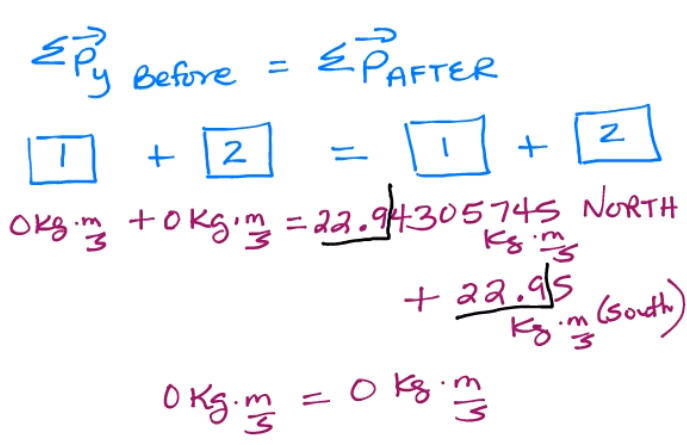 ΣP⃗y Before = ΣP⃗AFTER
1 + 2 = 1 + 2
0 Kg·m/s + 0 Kg·m/s = 22.94305745 Kg·m/s NORTH
+ 22.95 Kg·m/s (South)
0 Kg·m/s = 0 Kg·m/s